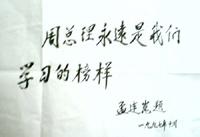 周总理永远是我们
学习的榜样
孟连崑题
一九九七年十月